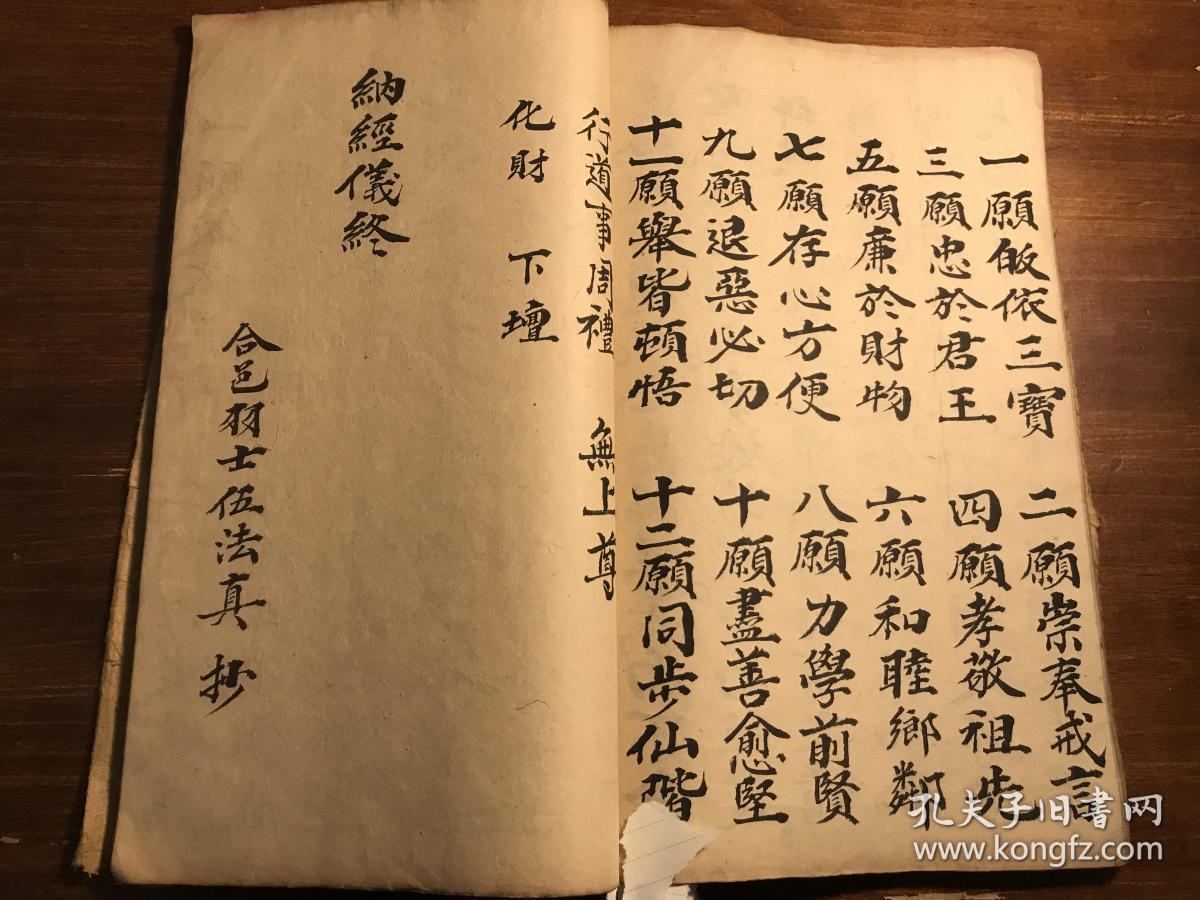 一願皈依三寶 二願崇奉戒言
三願忠於君王 四願孝敬祖先
五願廉於財物 六願和睦鄉鄰
七願存心方便 八願力學前賢
九願退惡必切 十願盡善愈堅
十一願舉皆頓悟 十二願同步仙階
行道事周禮 無上尊
化財 下壇
納經儀終
合邑羽士伍法真 抄
孔夫子旧書网
www.kongfz.com